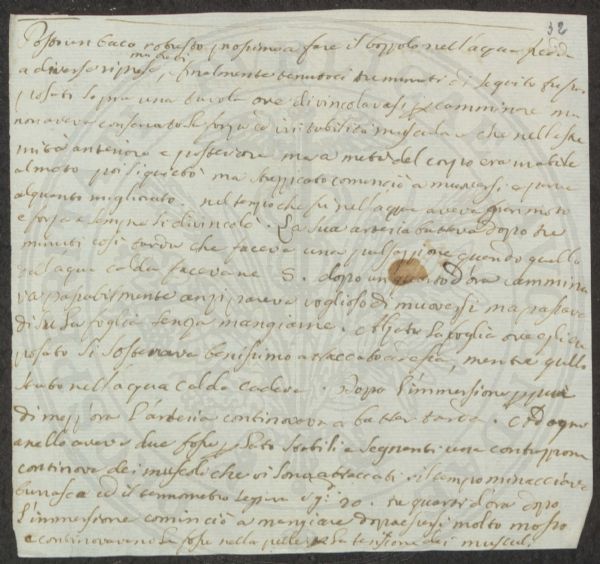 32
Posto un baco robusto prossimo a fare il bozzolo nell'acqua fredda
a diverse riprese, e finalmente tenutoci tre minuti di seguito fu poi
posato sopra una tavola ove divincolavasi camminare ma
non aveva conservato la forza ed irritabilità muscolare che nelle estre
mità anteriore e posteriore ma a metà del corpo era inabile
al moto poi si quietò ma stuzzicato cominciò a muoversi e parve
alquanto migliorato. nel tempo che fu nell'acqua aveva gran moto
e forza e sempre si divincolò. La sua arteria batteva dopo tre
minuti così tarda che faceva una pulsazione quando quello
nell'acqua calda facevane 5. dopo un quarto d'ora cammina
va palpabilmente anzi pareva voglioso di muoversi ma passava
di su la foglia senza mangiarne. Alzata la foglia ove egli era
posato si sosteneva benissimo attaccato ad essa, mentre quello
stato nell'acqua calda cadeva. Dopo l'immersione più
di mezz'ora l'arteria continovava a batter tarda. Ad ogni
anello aveva due fosse lato stabili e segnanti una contrazione
continova dei muscoli che vi sono attaccati. il tempo minacciava
burrasca ed il termometro segnava g.i 20. tre quarti d'ora dopo
l'immersione cominciò a mangiare dopo essersi molto mosso
e continovavano le fosse nella pelle e la tensione dei muscoli.